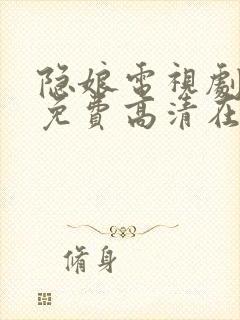 隐娘電視劇
免費高清在
脩身